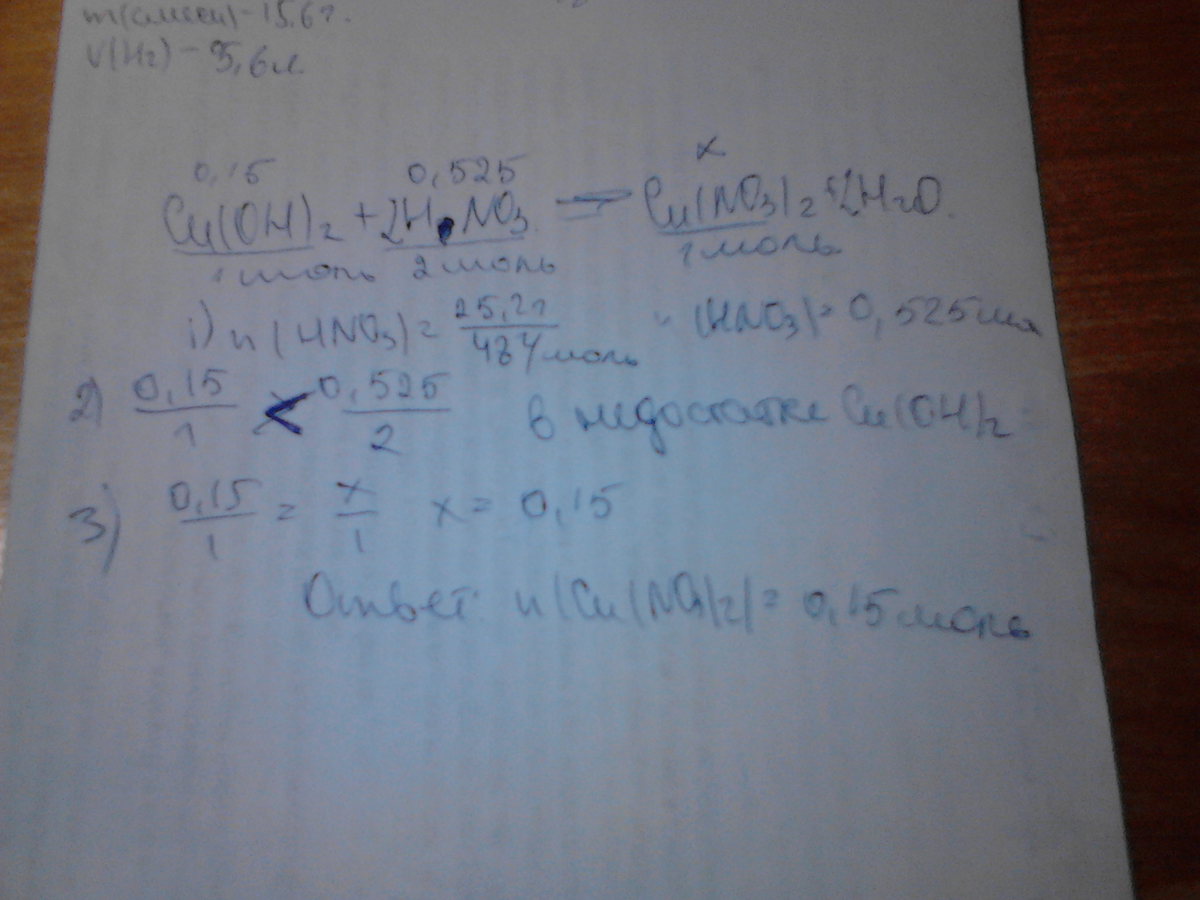 m(смеси) - 15,6 г.
V(H2) - 5,6 л.
0,15 0,525 x
Cu(OH)2 + 2HNO3 = Cu(NO3)2 + 2H2O.
1 моль 2 моль 1 моль
1) n(HNO3) = 25,2 г / 48 г/моль n(HNO3) = 0,525 моль
2) 0,15/1 < 0,525/2 в недостатке Cu(OH)2
3) 0,15/1 = x/1 x = 0,15
Ответ: n(Cu(NO3)2) = 0,15 моль